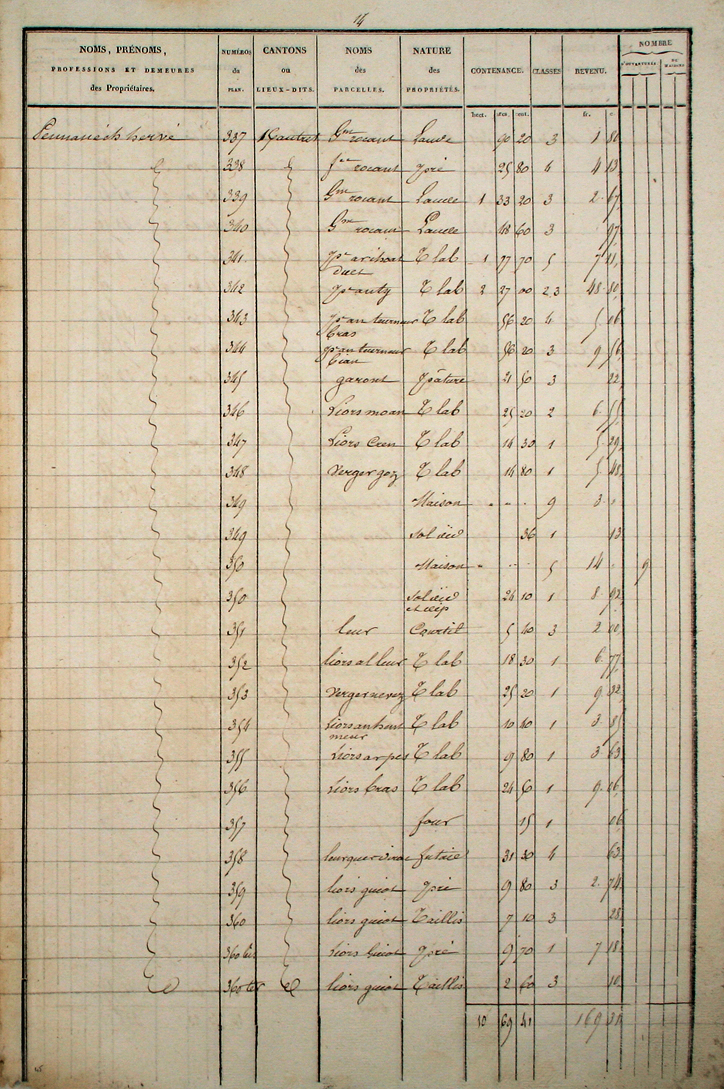 14
NOMS, PRÉNOMS, PROFESSIONS ET DEMEURES des Propriétaires. NUMÉROS du PLAN. CANTONS ou LIEUX-DITS. NOMS des PARCELLES. NATURE des PROPRIÉTÉS. CONTENANCE. CLASSES REVENU. NOMBRE D'OUVERTURES DE MAISONS
hect. ares. cent. fr. c.
Pennanéch hervé 337 Gm rocant Lande 90 20 3 1 80
338 rocant pré 25 80 4 4 13
339 Gm rocant Lande 1 33 20 3 2 67
340 Gm rocant Lande 48 60 3 97
341 T lab 1 77 70 5 7 11
342 T lab 2 27 00 2,3 48 80
343 pr an tourneur T lab 56 20 4 5 06
bras
344 pr an tourneur T lab 56 20 3 9 56
bian
345 garont pâture 21 50 3 22
346 Liors moan T lab 25 20 2 6 55
347 Liors Cren T lab 14 30 1 5 29
348 verger goz T lab 14 80 1 5 48
349 Maison 9 3
349 Sol 36 1 13
350 Maison 5 14 9
350 Sol 24 10 1 8 92
351 leur Courtil 5 40 3 2 00
352 liors al leur T lab 18 30 1 6 77
353 verger nevez T lab 25 20 1 9 32
354 Liors an hent T lab 10 40 1 3 85
meur
355 Liors ar pes T lab 9 80 1 3 63
356 Liors bras T lab 24 50 1 9 06
357 four 15 1 06
358 futaie 31 30 4 63
359 liors guiot pré 9 80 3 2 74
360 liors guiot Taillis 7 10 3 28
360 bis Liors Guiot pré 9 70 1 7 18
360 ter liors guiot Taillis 2 60 3 10
10 69 41 169 31